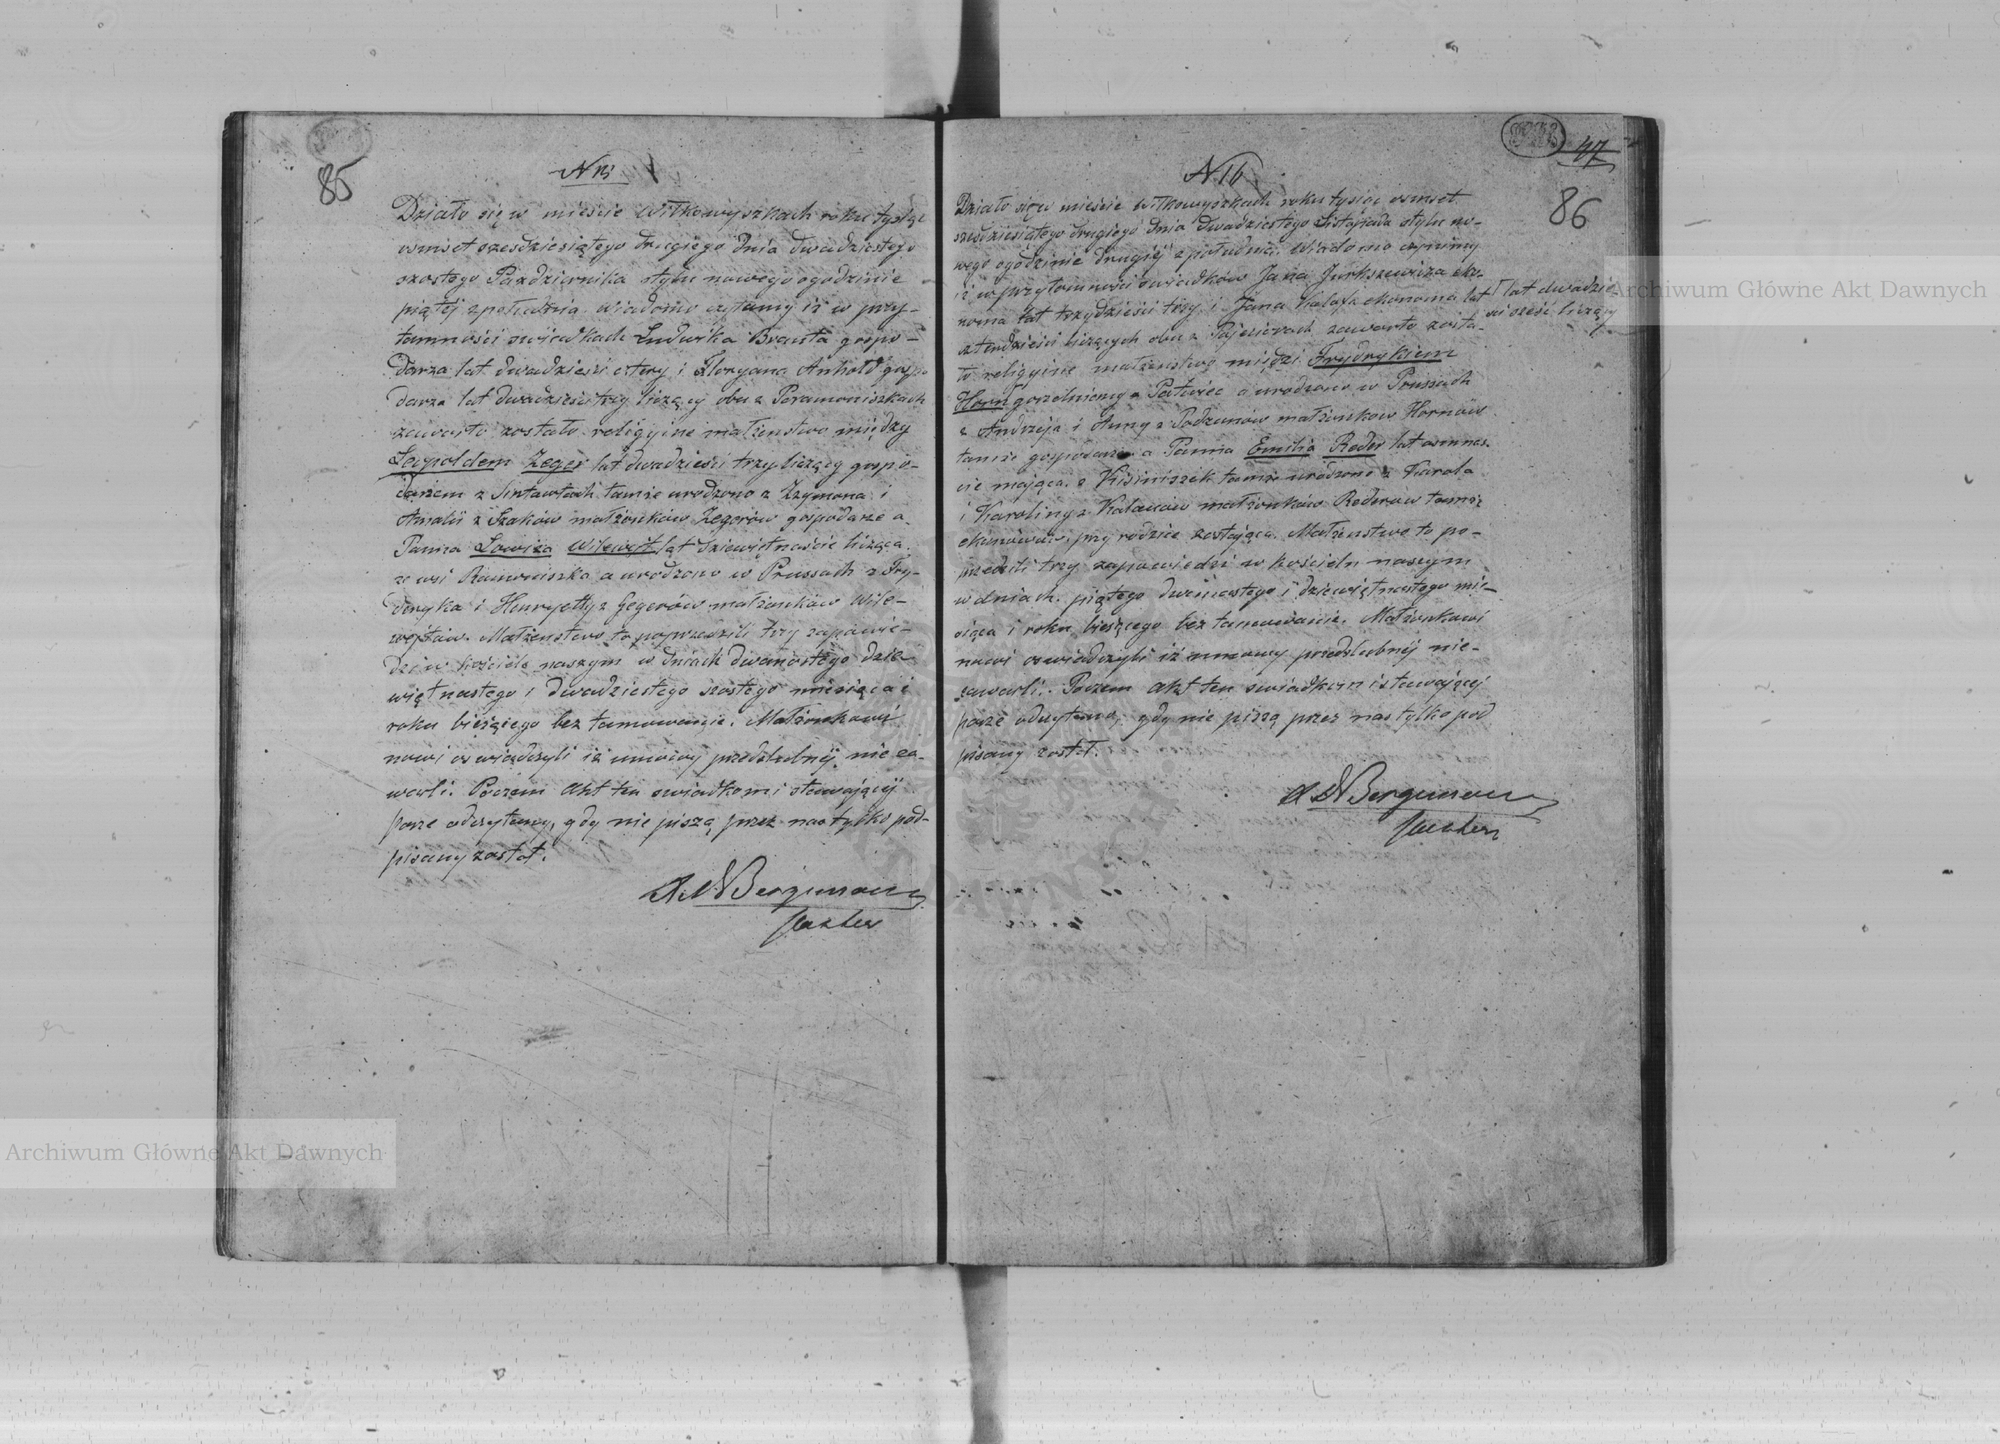 85
N 15
Działo się w mieście Wiłkowyszkach roku tysiąc
osmset szesdziesiątego drugiego dnia dwudziestego
szostego Pazdziernika stylu nowego ogodzinie
piątéj z południa wiadomo czyniemy iż w przy-
tomności swiadków Ludwika Brausta gospo-
darza lat dwadzieści cztery i Floryana Anhold gospo
darza lat dwadzieścia trzy liczący obu z Poramoniszkach
zawarto zostało religyine małzenstwo między
Leopoldem Zeger lat dwadzieści trzy liczący gospo-
darzem z Sintawtach tamże urodzono z Szymona i
Amalii z Szaków małżonków Zegerów gospodarze a
Panna Lowiza Wilewejt lat dziewiętnaście licząca
ze wsi a urodzono w Prussach z Fry-
deryka i Henryetty z Gegerów małzonków Wile-
wejtów. Małzenstwo to poprzedzili trzy zapowie-
dzi w kościele naszym w dniach dwunastego dzie-
więtnastego i dwudziestego szostego miesiąca i
roku bieżącego bez tamowanie. Małzonkowi
nowi oswiadczyli iż umowy przedslubnéj nie za-
warli. Poczem Akt ten swiadkom i stawającéj
parze odczytany, gdy nie piszą przez nas tylko pod-
pisany został.
A. W Bergmann
Pastor
47
86
N 16
Działo się w mieście Wiłkowyszkach roku tysiąc osmset
szesdziesiątego drugiego dnia dwudziestego Listopada stylu no-
wego ogodzinie drugiéj z południa. Wiadomo czyniemy
iż w przytomności swiadków Jana Jurkszewicza eko-
noma lat trzydzieści trzy i Jana ekonoma lat
czterdzieści liczących obu z Pajeziorach zawarto zosta-
ło religyine małzenstwo między Frydrykiem
lat dwadzie-
ści sześć liczący
Horn gorzelniczy z a urodzono w Prussach
z Andrzeja i Anny z małzonków Hornów
tamże gospodarze a Panna Emilia Reder lat osmnas
cie mająca z Kisiniszek tamże urodzona z Karola
i Karoliny z małzonków Rederów tamże
ekonomów, przy rodzice zostająca. Małzenstwo to po-
przedzili trzy zapowiedzi w kościele naszym
w dniach piątego dwunastego i dziewiętnastego mie-
siąca i roku bieżącego bez tamowanie. Małzonkowi
nowi oswiadczyli iż umowy przedslubnéj nie-
zawarli. Poczem Akt ten swiadkom i stawającéj
parze odczytany, gdy nie piszą przez nas tylko pod
pisany został.
A W Bergmann
Pastor
Archiwum Główne Akt Dawnych
Archiwum Główne Akt Dawnych